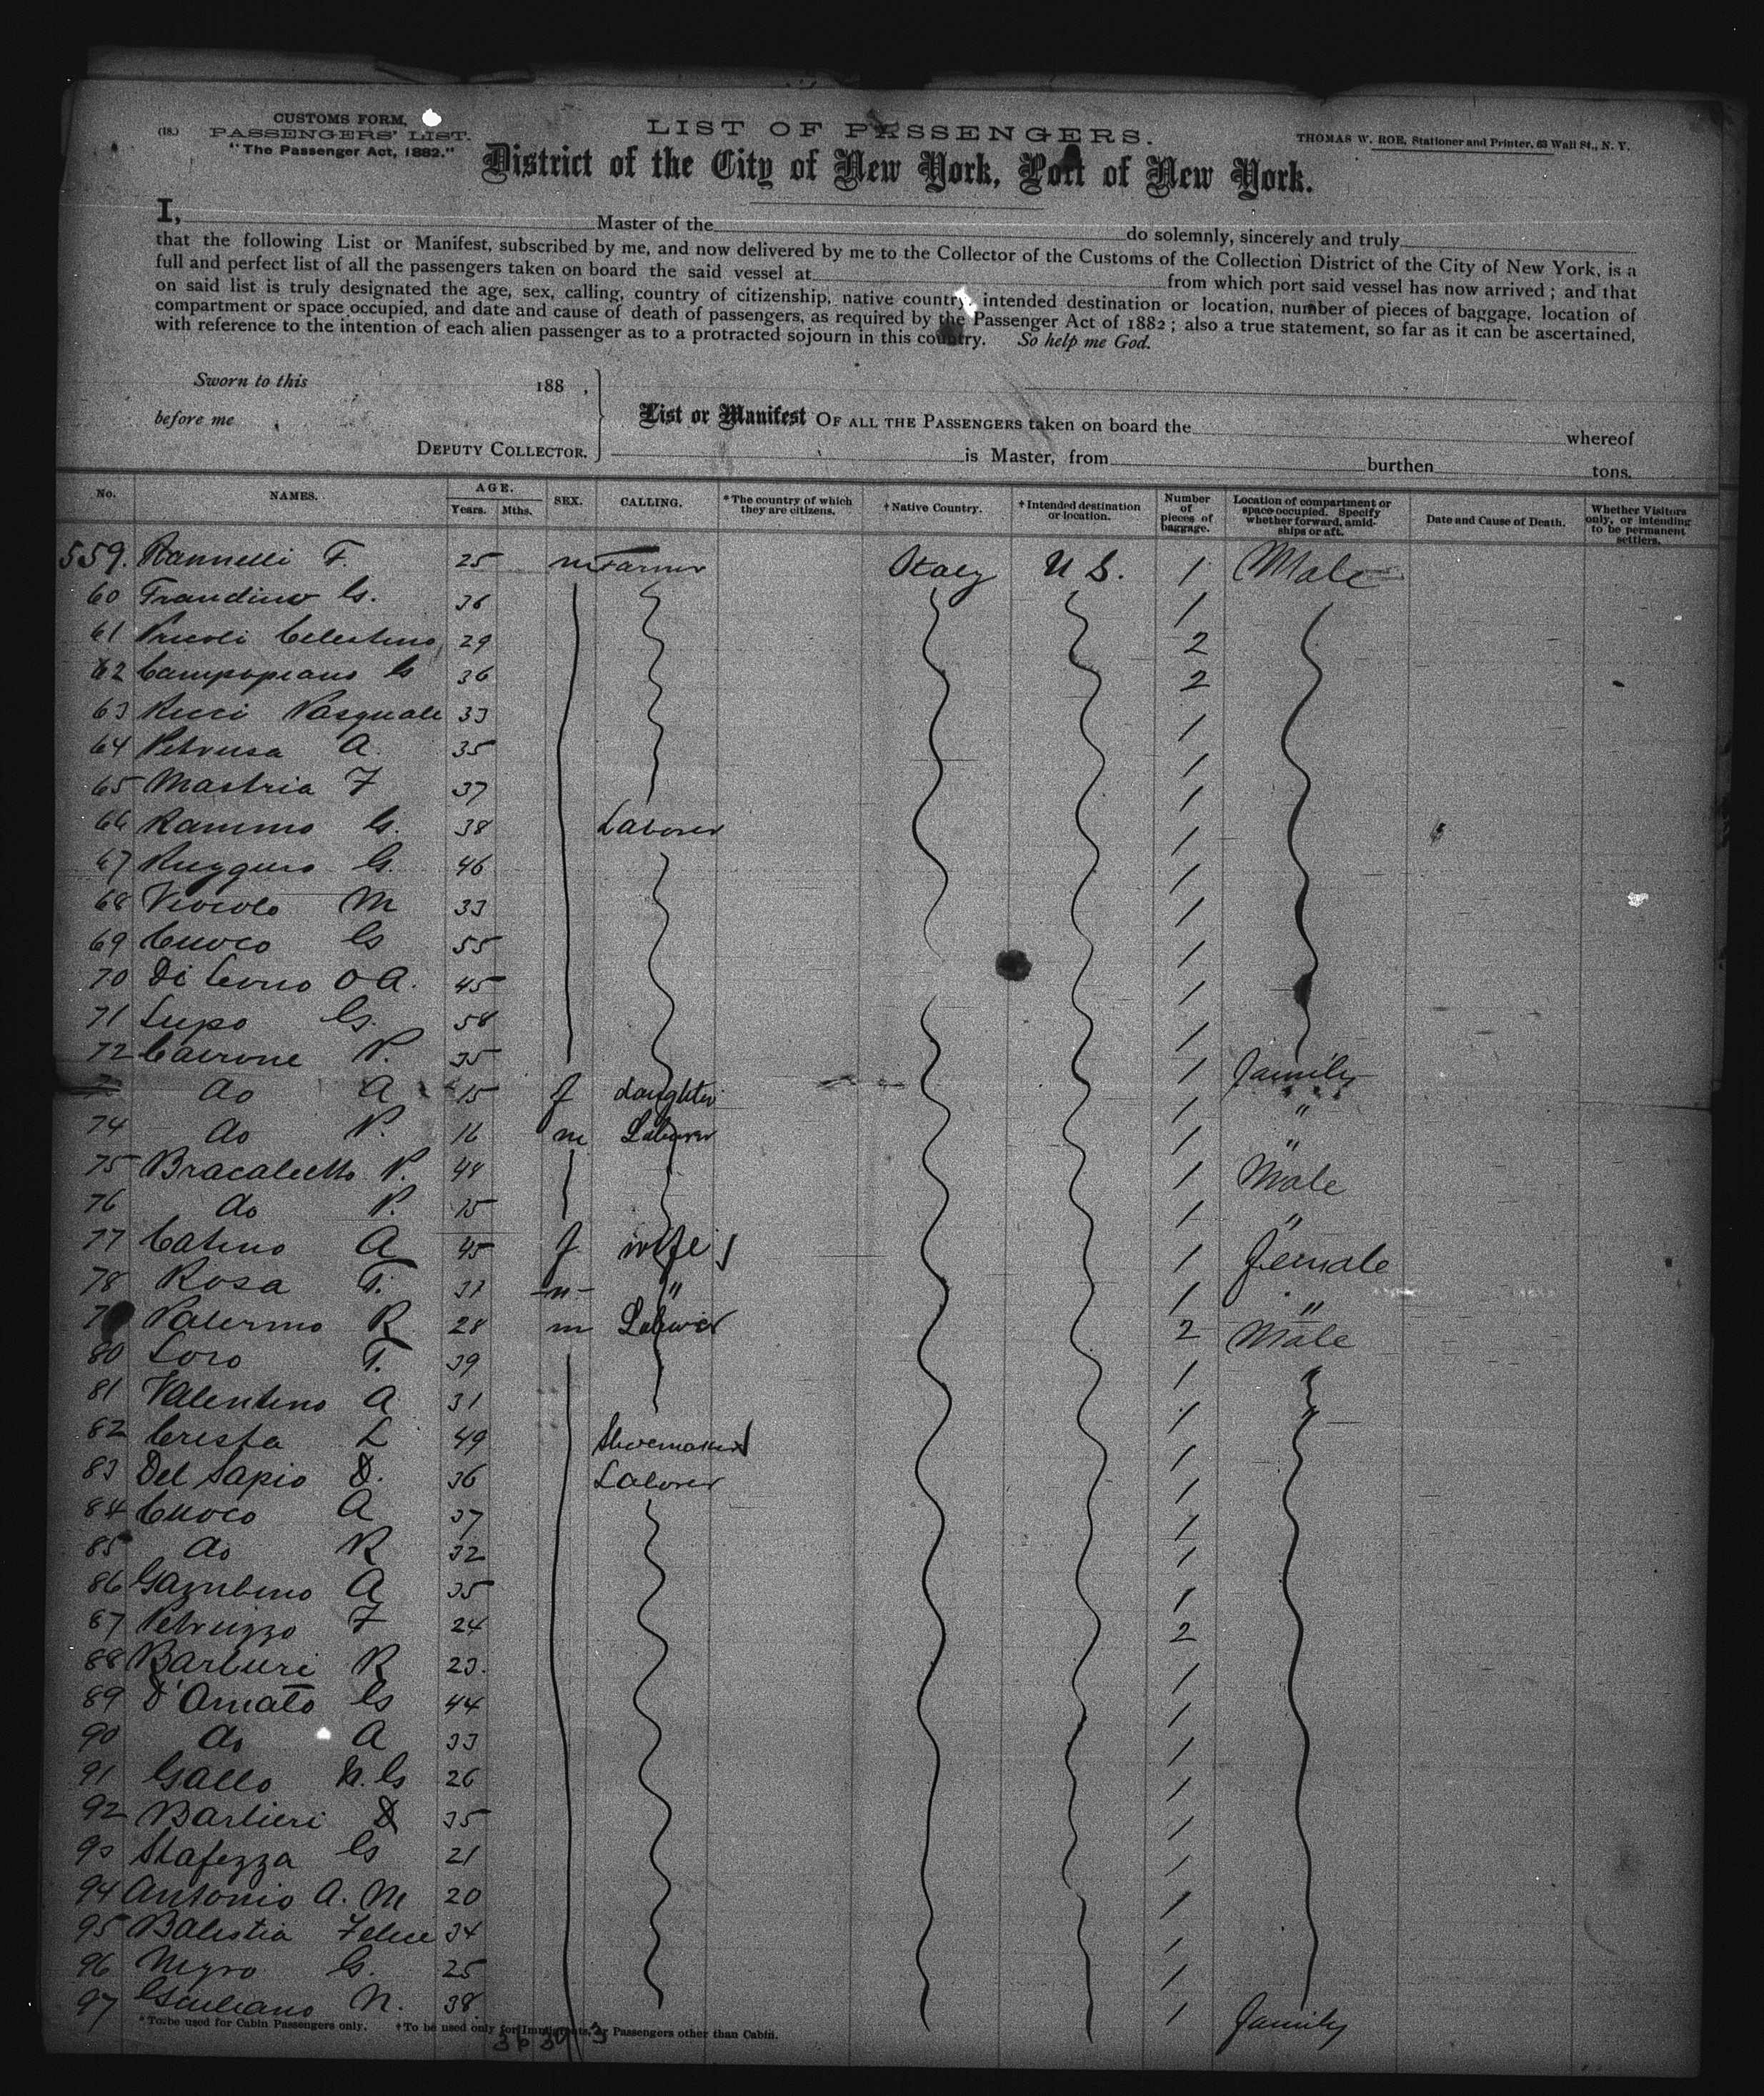 (18.)
CUSTOMS FORM,
PASSENGERS' LIST.
"The Passenger Act, 1882."
LIST OF PASSENGERS.
THOMAS W. ROE, Stationer and Printer, 63 Wall St., N. Y.
District of the City of New York, Port of New York.
I, Master of the do solemnly, sincerely and truly
that the following List or Manifest, subscribed by me, and now delivered by me to the Collector of the Customs of the Collection District of the City of New York, is a
full and perfect list of all the passengers taken on board the said vessel at from which port said vessel has now arrived; and that
on said list is truly designated the age, sex, calling, country of citizenship, native country, intended destination or location, number of pieces of baggage, location of
compartment or space occupied, and date and cause of death of passengers, as required by the Passenger Act of 1882; also a true statement, so far as it can be ascertained,
with reference to the intention of each alien passenger as to a protracted sojourn in this country. So help me God.
Sworn to this 188 ,
before me
DEPUTY COLLECTOR.
List or Manifest OF ALL THE PASSENGERS taken on board the whereof
is Master, from burthen tons.
No. NAMES. AGE. Years. Mths. SEX. CALLING. *The country of which they are citizens. †Native Country. †Intended destination or location. Number of pieces of baggage. Location of compartment or space occupied. Specify whether forward, amidships or aft. Date and Cause of Death. Whether Visitors only, or intending to be permanent settlers.
559. F. 25 m Farmer Italy U S. 1 Male
60 Frandino G. 36 1
61 Celestino 29 2
62 Campopiano G 36 2
63 Ricci Pasquale 33 1
64 Petrusa A. 35 1
65 Mastria F 37 1
66 G. 38 Laborer 1
67 G. 46 1
68 M 33 1
69 Cuoco G 55 1
70 Di O A. 45 1
71 Lupo G. 58 1
72 P. 35 1 family
do A 15 f daughter 1 "
74 do P. 16 m Laborer 1 "
75 P. 48 1 Male
76 do P. 15 1 "
77 Catino A 45 f wife 1 female
78 Rosa T. 31 " " 1 "
7 Palermo R 28 m Laborer 2 Male
80 Loro T. 39 1 "
81 Valentino A 31 1 "
82 L 49 Shoemaker 1
83 Del Sapio D. 36 Laborer 1
84 Cuoco A 37 1
85 do R 32 1
86 Gambino A 35 1
87 Petruzzo F 24 2
88 Barbieri R 23. 1
89 D'Amato G 44 1
90 do A 33 1
91 Gallo N. G 26 1
92 Barbieri D 35 1
93 Stafezza G 21 1
94 Antonio A. M 20 1
95 Balestia Felice 34 1
96 G. 25 1
97 Giuliano N. 38 1 family
*To be used for Cabin Passengers only. †To be used only for Immigrants, or Passengers other than Cabin.